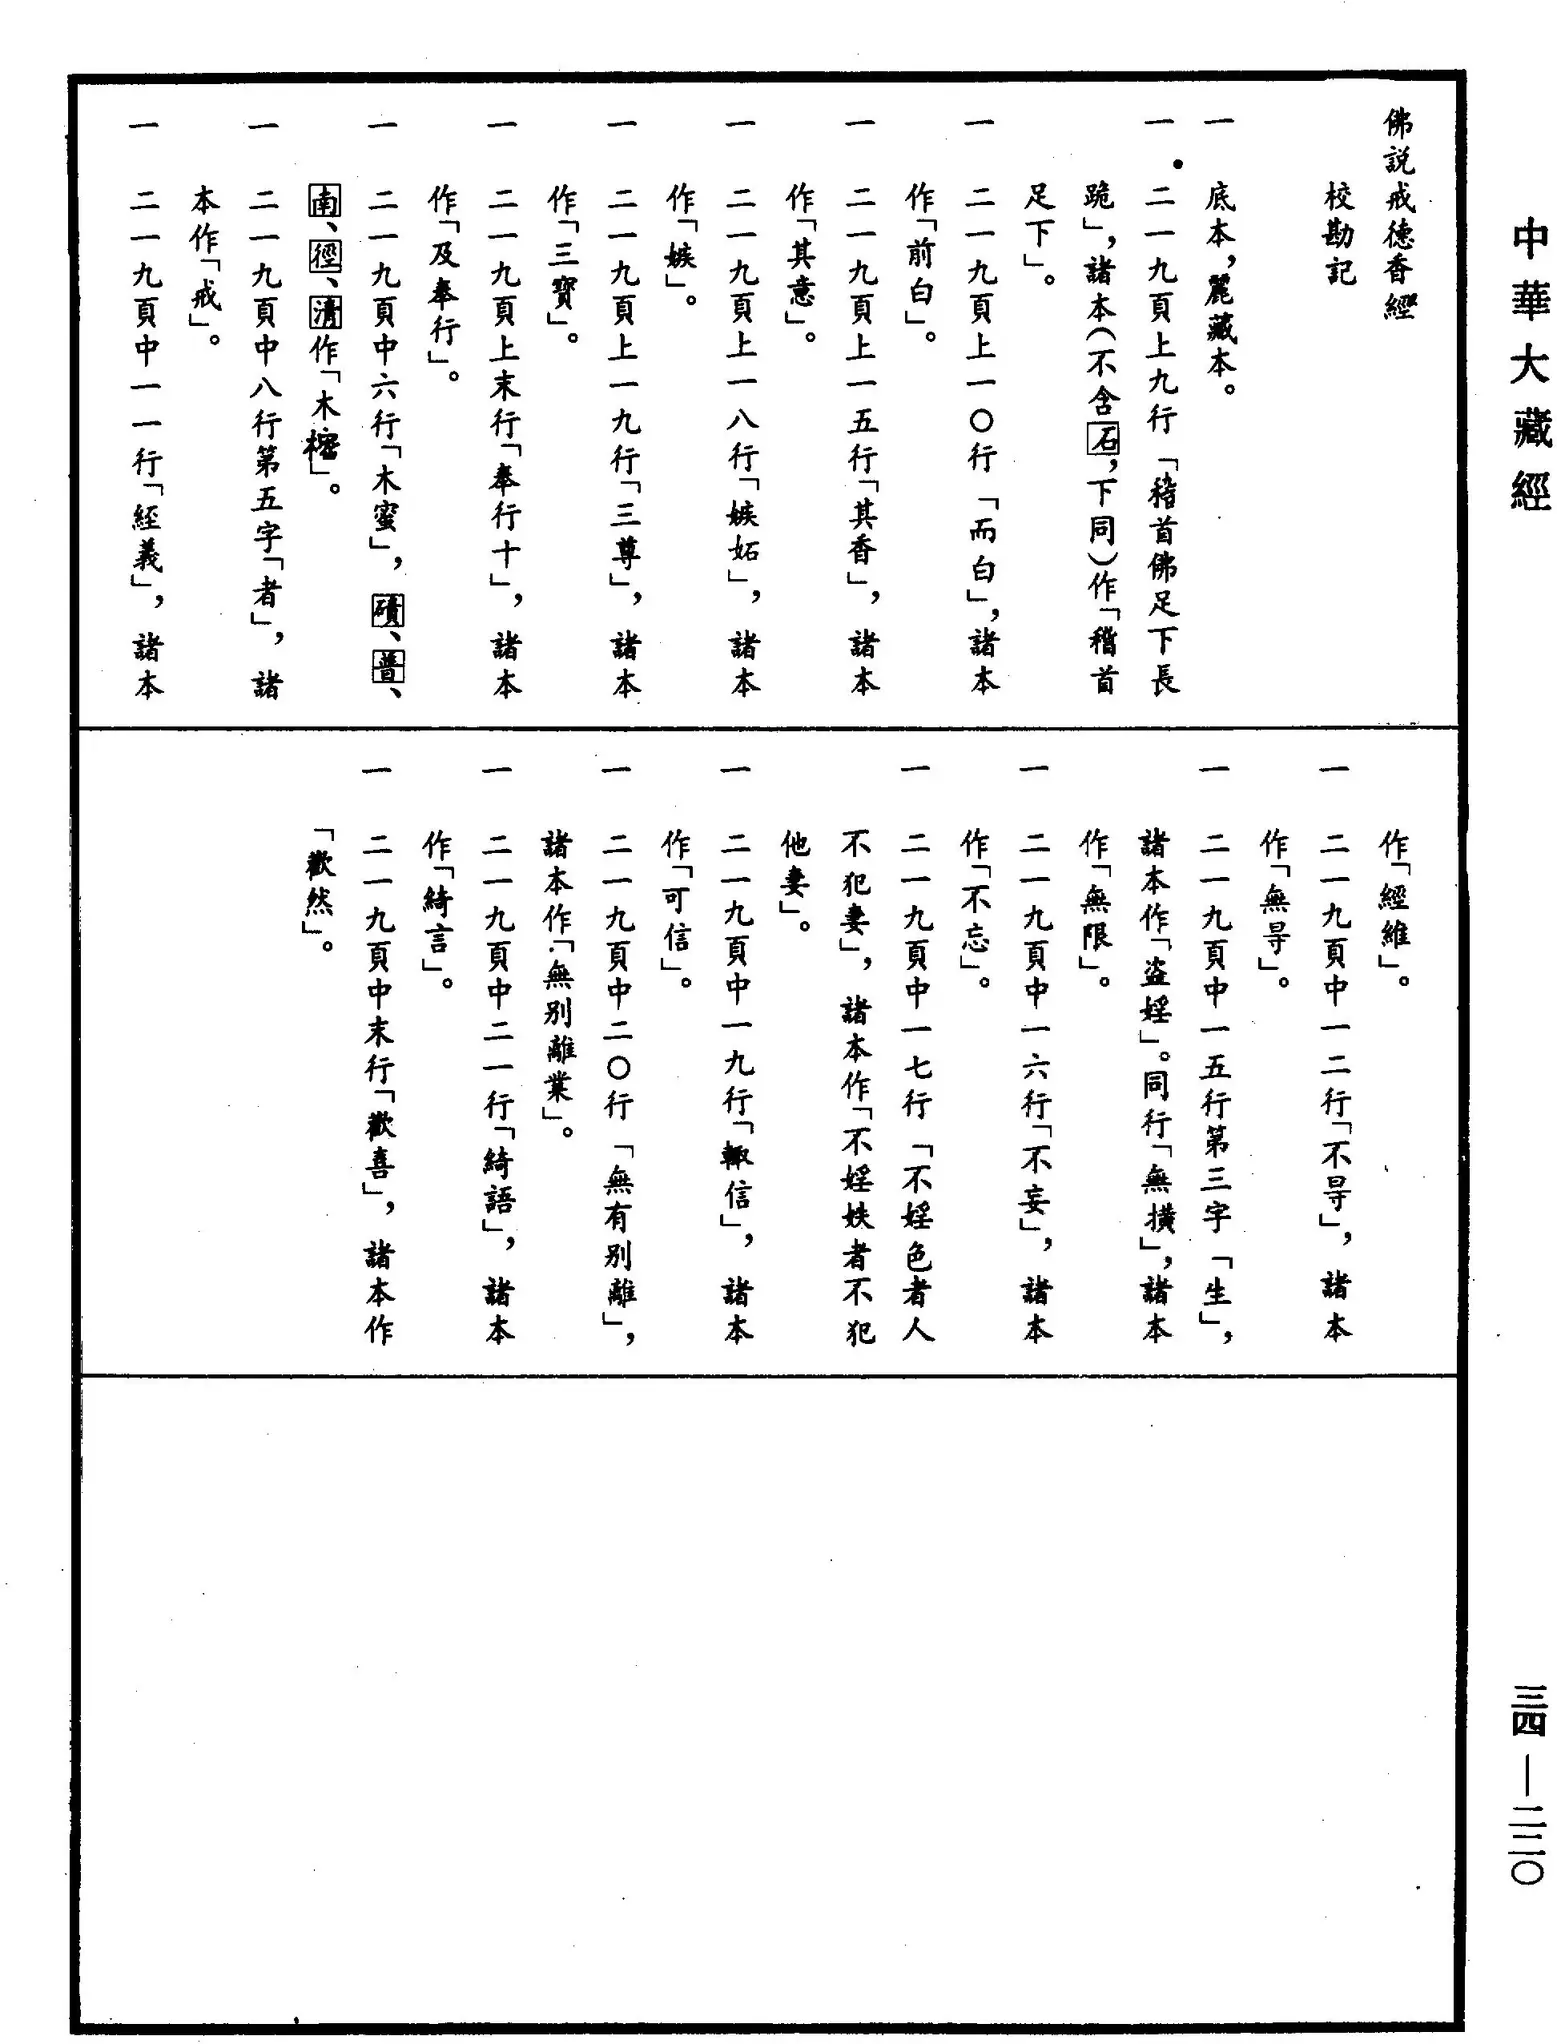 中華大藏經
佛說戒德香經
校勘記
一 底本，麗藏本。
一 二一九頁上九行「稽首佛足下長
跪」，諸本（不含石，下同）作「稽首
足下」。
一 二一九頁上一〇行「而白」，諸本
作「前白」。
一 二一九頁上一五行「其香」，諸本
作「其意」。
一 二一九頁上一八行「嫉妬」，諸本
作「嫉」。
一 二一九頁上一九行「三尊」，諸本
作「三寶」。
一 二一九頁上末行「奉行十」，諸本
作「及奉行」。
一 二一九頁中六行「木蜜」，磧、普、
南、徑、清作「木櫁」。
一 二一九頁中八行第五字「者」，諸
本作「戒」。
一 二一九頁中一一行「經義」，諸本
作「經維」。
一 二一九頁中一二行「不㝵」，諸本
作「無㝵」。
一 二一九頁中一五行第三字「生」，
諸本作「盜婬」。同行「無擴」，諸本
作「無限」。
一 二一九頁中一六行「不妄」，諸本
作「不忘」。
一 二一九頁中一七行「不婬色者人
不犯妻」，諸本作「不婬妷者不犯
他妻」。
一 二一九頁中一九行「輙信」，諸本
作「可信」。
一 二一九頁中二〇行「無有別離」，
諸本作「無別離業」。
一 二一九頁中二一行「綺語」，諸本
作「綺言」。
一 二一九頁中末行「歡喜」，諸本作
「歡然」。
三四—二二〇